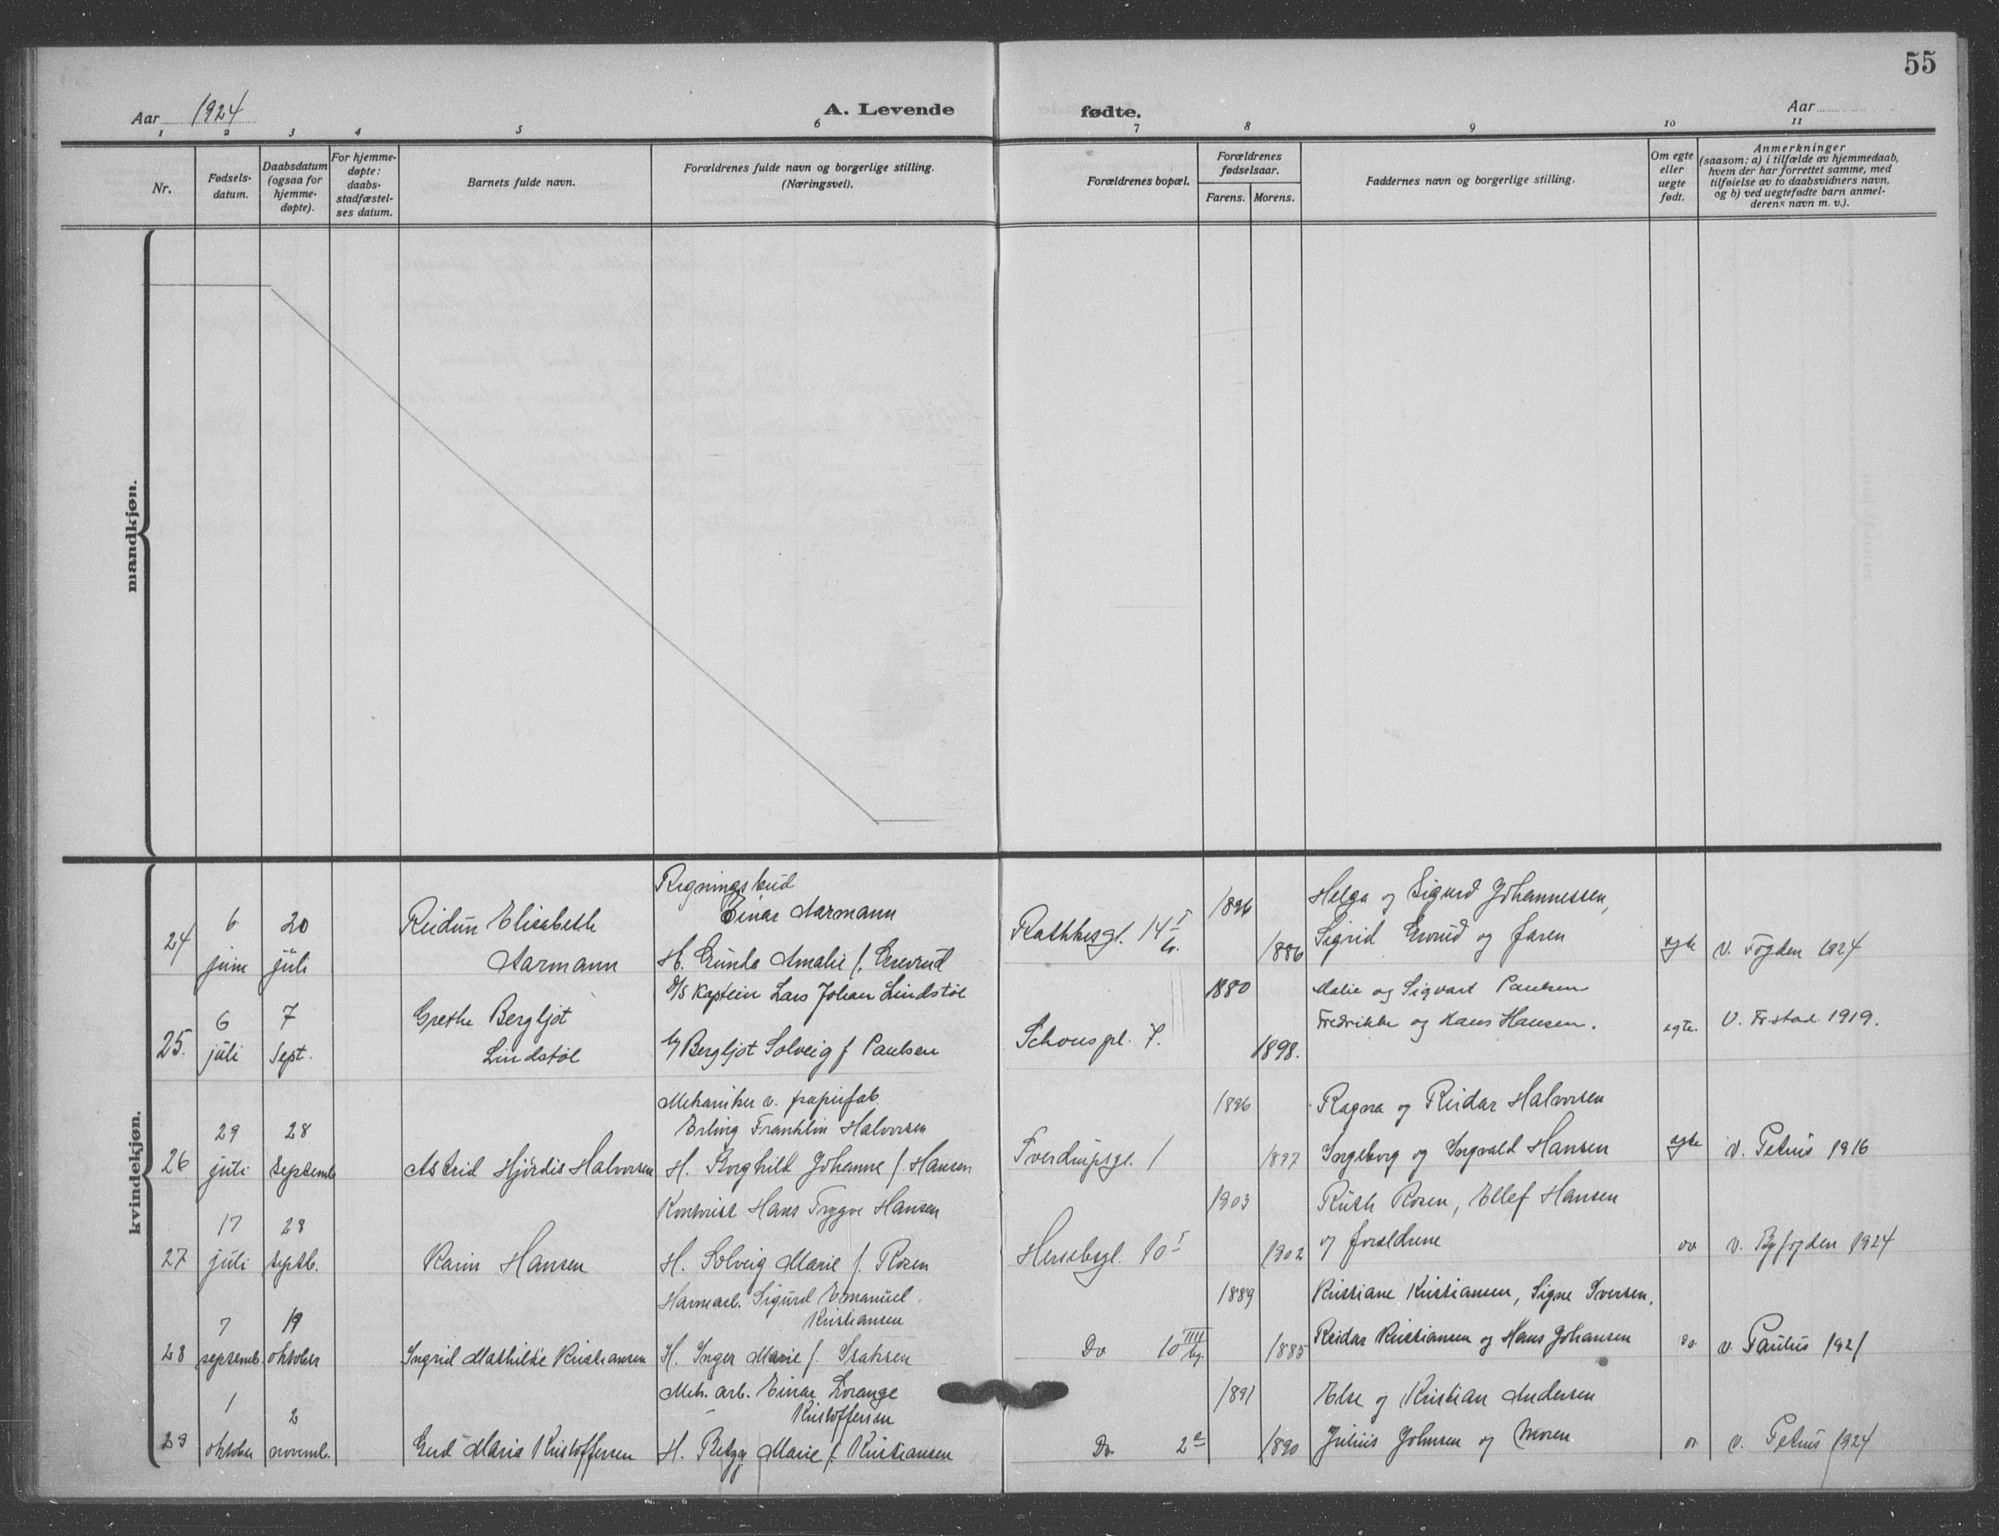 55
Aar 1924
A. Levende
fødte.
Aar
1 2 3 4 5 6 7 8 9 10 11
Nr.
Fødsels-
datum.
Daabsdatum
(ogsaa for
hjemme-
døpte).
For hjemme-
døpte:
daabs-
stadfæstel-
ses datum.
Barnets fulde navn.
Forældrenes fulde navn og borgerlige stilling.
(Næringsvei).
Forældrenes bopæl.
Forældrenes
fødselsaar.
Farens. Morens.
Faddernes navn og borgerlige stilling.
Om egte
eller
uegte
født.
Anmerkninger
(saasom: a) i tilfælde av hjemmedaab,
hvem der har forrettet samme, med
tilføielse av to daabsvidners navn,
og b) ved uegtefødte barn anmel-
derens navn m. v.).
mandkjøn.
kvindekjøn.
24
6
juni
20
juli
Reidun Elisabeth
Aarmann
Regningsbud
Einar Aarmann
H. Gunda Amalie f.
Rathkesgt. 14 I
1896
1886
Helga og Sigurd Johannessen,
Sigrid og faren
egte
v. Fogden 1924
25.
6
juli
7
Sept.
Grethe Bergljot
Lindstøl
D/S Kaptein Lars Johan Lindstøl
Bergljot Solveig f Paulsen
Schouspl. 7.
1880
1898.
Malie og Sigvart Paulsen
Fredrikke og Hans Hansen.
egte.
V. Frstad 1919.
26
29
juli
28
septemb
Astrid Hjørdis Halvorsen
Mekaniker v. papirfab.
Erling Franklin Halvorsen
H. Borghild Johanne f. Hansen
Tverdrupsgt. 1
1896
1897
Ragna og Reidar Halvorsen
Ingeborg og Ingvald Hansen
egte
v. Petrus 1916
27
17
juli
28
septb.
Karin Hansen
Kontorist Hans Trygve Hansen
H. Solveig Marie f. Rosen
Herslebsgt. 10 I
1903
1902
Ruth Rosen, Ellef Hansen
og forældrene
do
v. Byfogden 1924
28
7
septemb.
19
oktober
Ingrid Mathilde Kristiansen
Havnearb. Sigurd Emanuel
Kristiansen
H. Inger Marie f. Isaksen
Do 10 IIII
1889
1885
Kristiane Kristiansen, Signe Iversen,
Reidar Kristiansen og Hans Johansen
do.
v. Paulus 1921
29
1
oktober
2
novemb.
Gerd Maria Kristoffersen
Mek. arb. Einar Lorange
Kristoffersen
H. Betzy Marie f. Kristiansen
Do 2
1891
1890
Else og Kristian Andersen
Julius Johnsen og Moren
v. Petrus 1924